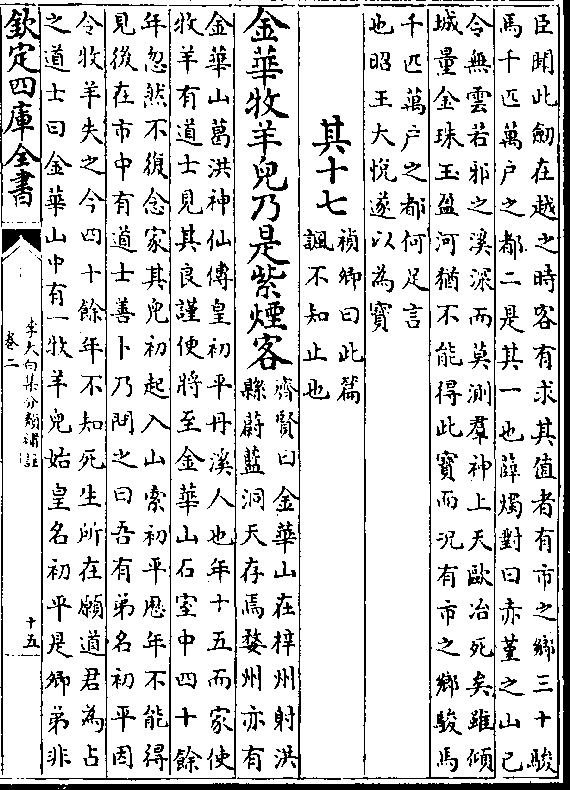 臣聞此劒在越之時客有求其值者有市之鄉三十駿
馬千匹萬户之都二是其一也薛燭對曰赤堇之山已
令無雲若邪之溪深而莫測羣神上天歐冶死矣雖傾
城量金珠玉盈河猶不能得此寶而况有市之鄉駿馬
千匹萬户之都何足言
也昭王大悅遂以為寶
其十七
禎卿曰此篇
諷不知止也
金華牧羊兒乃是紫煙客
齊賢曰金華山在梓州射洪
縣蔚藍洞天存焉婺州亦有
金華山葛洪神仙傳皇初平丹溪人也年十五而家使
牧羊有道士見其良謹使將至金華山石室中四十餘
年忽然不復念家其兄初起入山索初平歴年不能得
見後在市中有道士善卜乃問之曰吾有弟名初平因
令牧羊失之今四十餘年不知死生所在願道君為占
之道士曰金華山中有一牧羊兒始皇名初平是卿弟非
欽定四庫全書
李太白集分類補註
卷二
十五